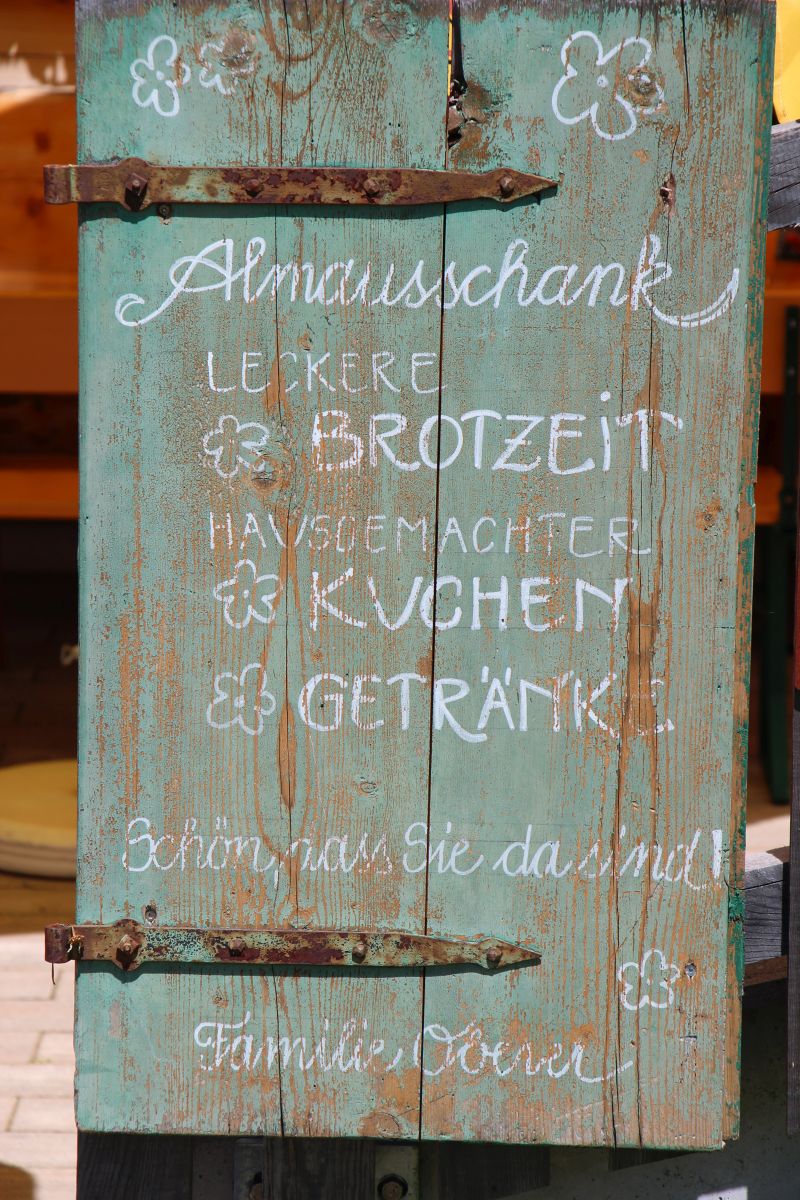 Almausschank
LECKERE
BROTZEIT
HAUSGEMACHTER
KUCHEN
GETRÄNKE
Schön, dass Sie da sind!
Familie Oberer